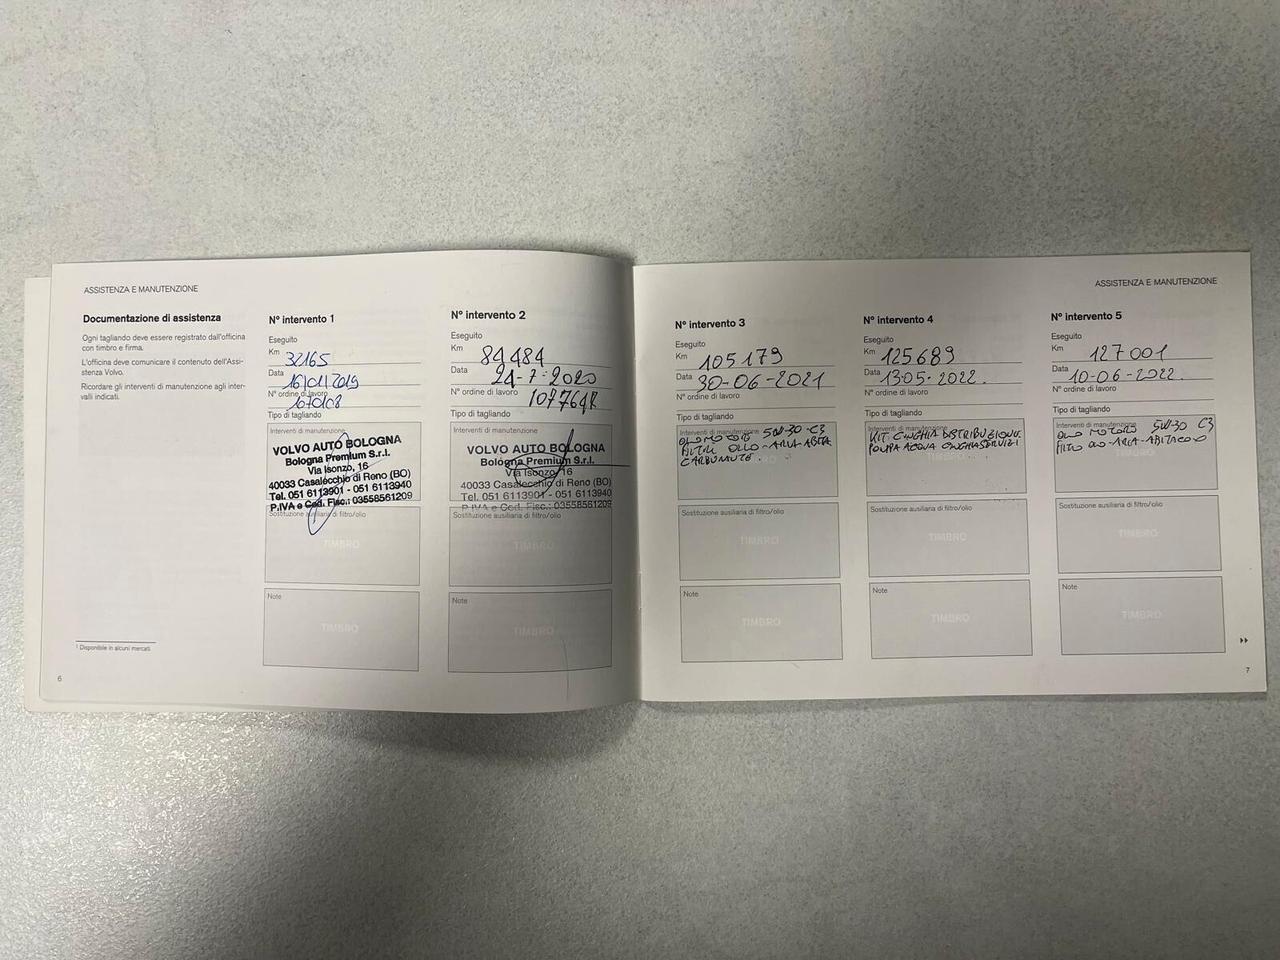 ASSISTENZA E MANUTENZIONE
Documentazione di assistenza
Ogni tagliando deve essere registrato dall'officina
con timbro e firma.
L'officina deve comunicare il contenuto dell'Assi-
stenza Volvo.
Ricordare gli interventi di manutenzione agli inter-
valli indicati.
1 Disponibile in alcuni mercati
6
N° intervento 1
Eseguito
Km 32165
Data 16/01/2019
N° ordine di lavoro
Tipo di tagliando
Interventi di manutenzione
VOLVO AUTO BOLOGNA
Bologna Premium S.r.l.
Via Isonzo, 16
40033 Casalecchio di Reno (BO)
Tel. 051 6113901 - 051 6113940
P.IVA e Cod. Fisc.: 03558561209
Sostituzione ausiliaria di filtro/olio
TIMBRO
Note
TIMBRO
N° intervento 2
Eseguito
Km 84484
Data 21-7-2020
N° ordine di lavoro
Tipo di tagliando
Interventi di manutenzione
VOLVO AUTO BOLOGNA
Bologna Premium S.r.l.
Via Isonzo, 16
40033 Casalecchio di Reno (BO)
Tel. 051 6113901 - 051 6113940
P.IVA e Cod. Fisc.: 03558561209
Sostituzione ausiliaria di filtro/olio
TIMBRO
Note
TIMBRO
ASSISTENZA E MANUTENZIONE
N° intervento 3
Eseguito
Km 105179
Data 30-06-2021
N° ordine di lavoro
Tipo di tagliando
Interventi di manutenzione
OLIO MOTORE 5W-30 C3
FILTRI OLIO-ARIA-ABITA
CARBURANTE.
Sostituzione ausiliaria di filtro/olio
TIMBRO
Note
TIMBRO
N° intervento 4
Eseguito
Km 125689
Data 13-05-2022.
N° ordine di lavoro
Tipo di tagliando
Interventi di manutenzione
KIT CINGHIA DISTRIBUZIONE
POMPA ACQUA CINGHIA SERVIZI
TIMBRO
Sostituzione ausiliaria di filtro/olio
TIMBRO
Note
TIMBRO
N° intervento 5
Eseguito
Km 127001
Data 10-06-2022.
N° ordine di lavoro
Tipo di tagliando
Interventi di manutenzione
OLIO MOTORE 5W-30 C3
FILTRO OLIO-ARIA-ABITACOLO
TIMBRO
Sostituzione ausiliaria di filtro/olio
TIMBRO
Note
TIMBRO
7